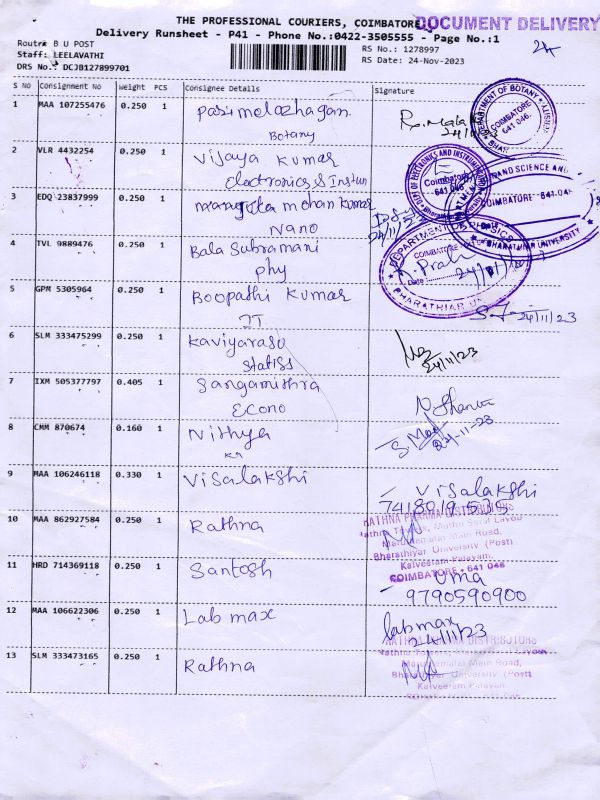 THE PROFESSIONAL COURIERS, COIMBATORE
DOCUMENT DELIVERY
Delivery Runsheet - P41 - Phone No.:0422-3505555 - Page No.:1
Route: B U POST
Staff: LEELAVATHI
DRS No.: DCJB127899701
RS No.: 1278997
RS Date: 24-Nov-2023
S No Consignment No Weight PCS Consignee Details Signature
1 MAA 107255476 0.250 1
Botany
24/11/23
DEPARTMENT OF BOTANY
COIMBATORE
641 046.
2 VLR 4432254 0.250 1 Vijaya Kumar
Electronics & Instrun
DEPT OF ELECTRONICS AND INSTRUMENTATION
Coimbatore
641 046
3 EDQ 23837999 0.250 1 mohan Kumar
Nano
24/11/23
NANO SCIENCE AND
COIMBATORE - 641 046
BHARATHIAR UNIVERSITY
4 TVL 9889476 0.250 1 Bala Subramani
phy
DEPARTMENT OF PHYSICS
COIMBATORE
Date:
24/11/
BHARATHIAR UN
5 GPM 5305964 0.250 1 Boopathi Kumar
IT
24/11/23
6 SLM 333475299 0.250 1 Kaviyarasu
Statiss
24/11/23
7 IXM 505377797 0.405 1 Sangamithra
Econo
8 CMM 870674 0.160 1 Nithya
24-11-23
9 MAA 106246118 0.330 1 Visalakshi
Visalakshi
10 MAA 862927584 0.250 1 Rathna
RATHNA PHARMA DISTRIBUTORS
Marudamalai Main Road,
Bharathiyar University (Post)
Kalveeram Palayam,
COIMBATORE - 641 046
11 HRD 714369118 0.250 1 Santosh
Uma
9790590900
12 MAA 106622306 0.250 1 Lab max
labmax
24/11/23
13 SLM 333473165 0.250 1 Rathna
Marudamalai Main Road,
Bharathiyar University (Post)
Kalveeram Palayan,